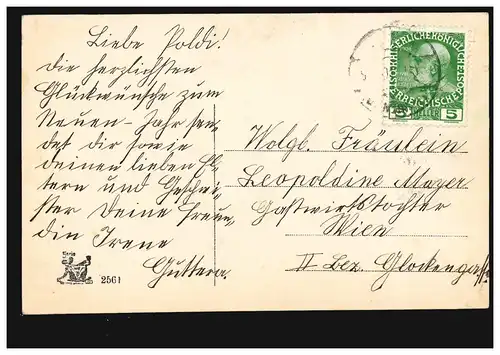 Liebe Poldi!
Die herzlichsten
Glückwünsche zum
Neuen-Jahr sen-
det dir sowie
deinen lieben El-
tern und Geschwi-
ster Deine Freun-
din Irene
Guttera.
2561
KAISERLICHE KÖNIGLICHE
ÖSTERREICHISCHE
5 HELLER 5
Wolgl. Fräulein
Leopoldine Mayer
Gastwirtstochter
Wien
II Bez. Glockeng